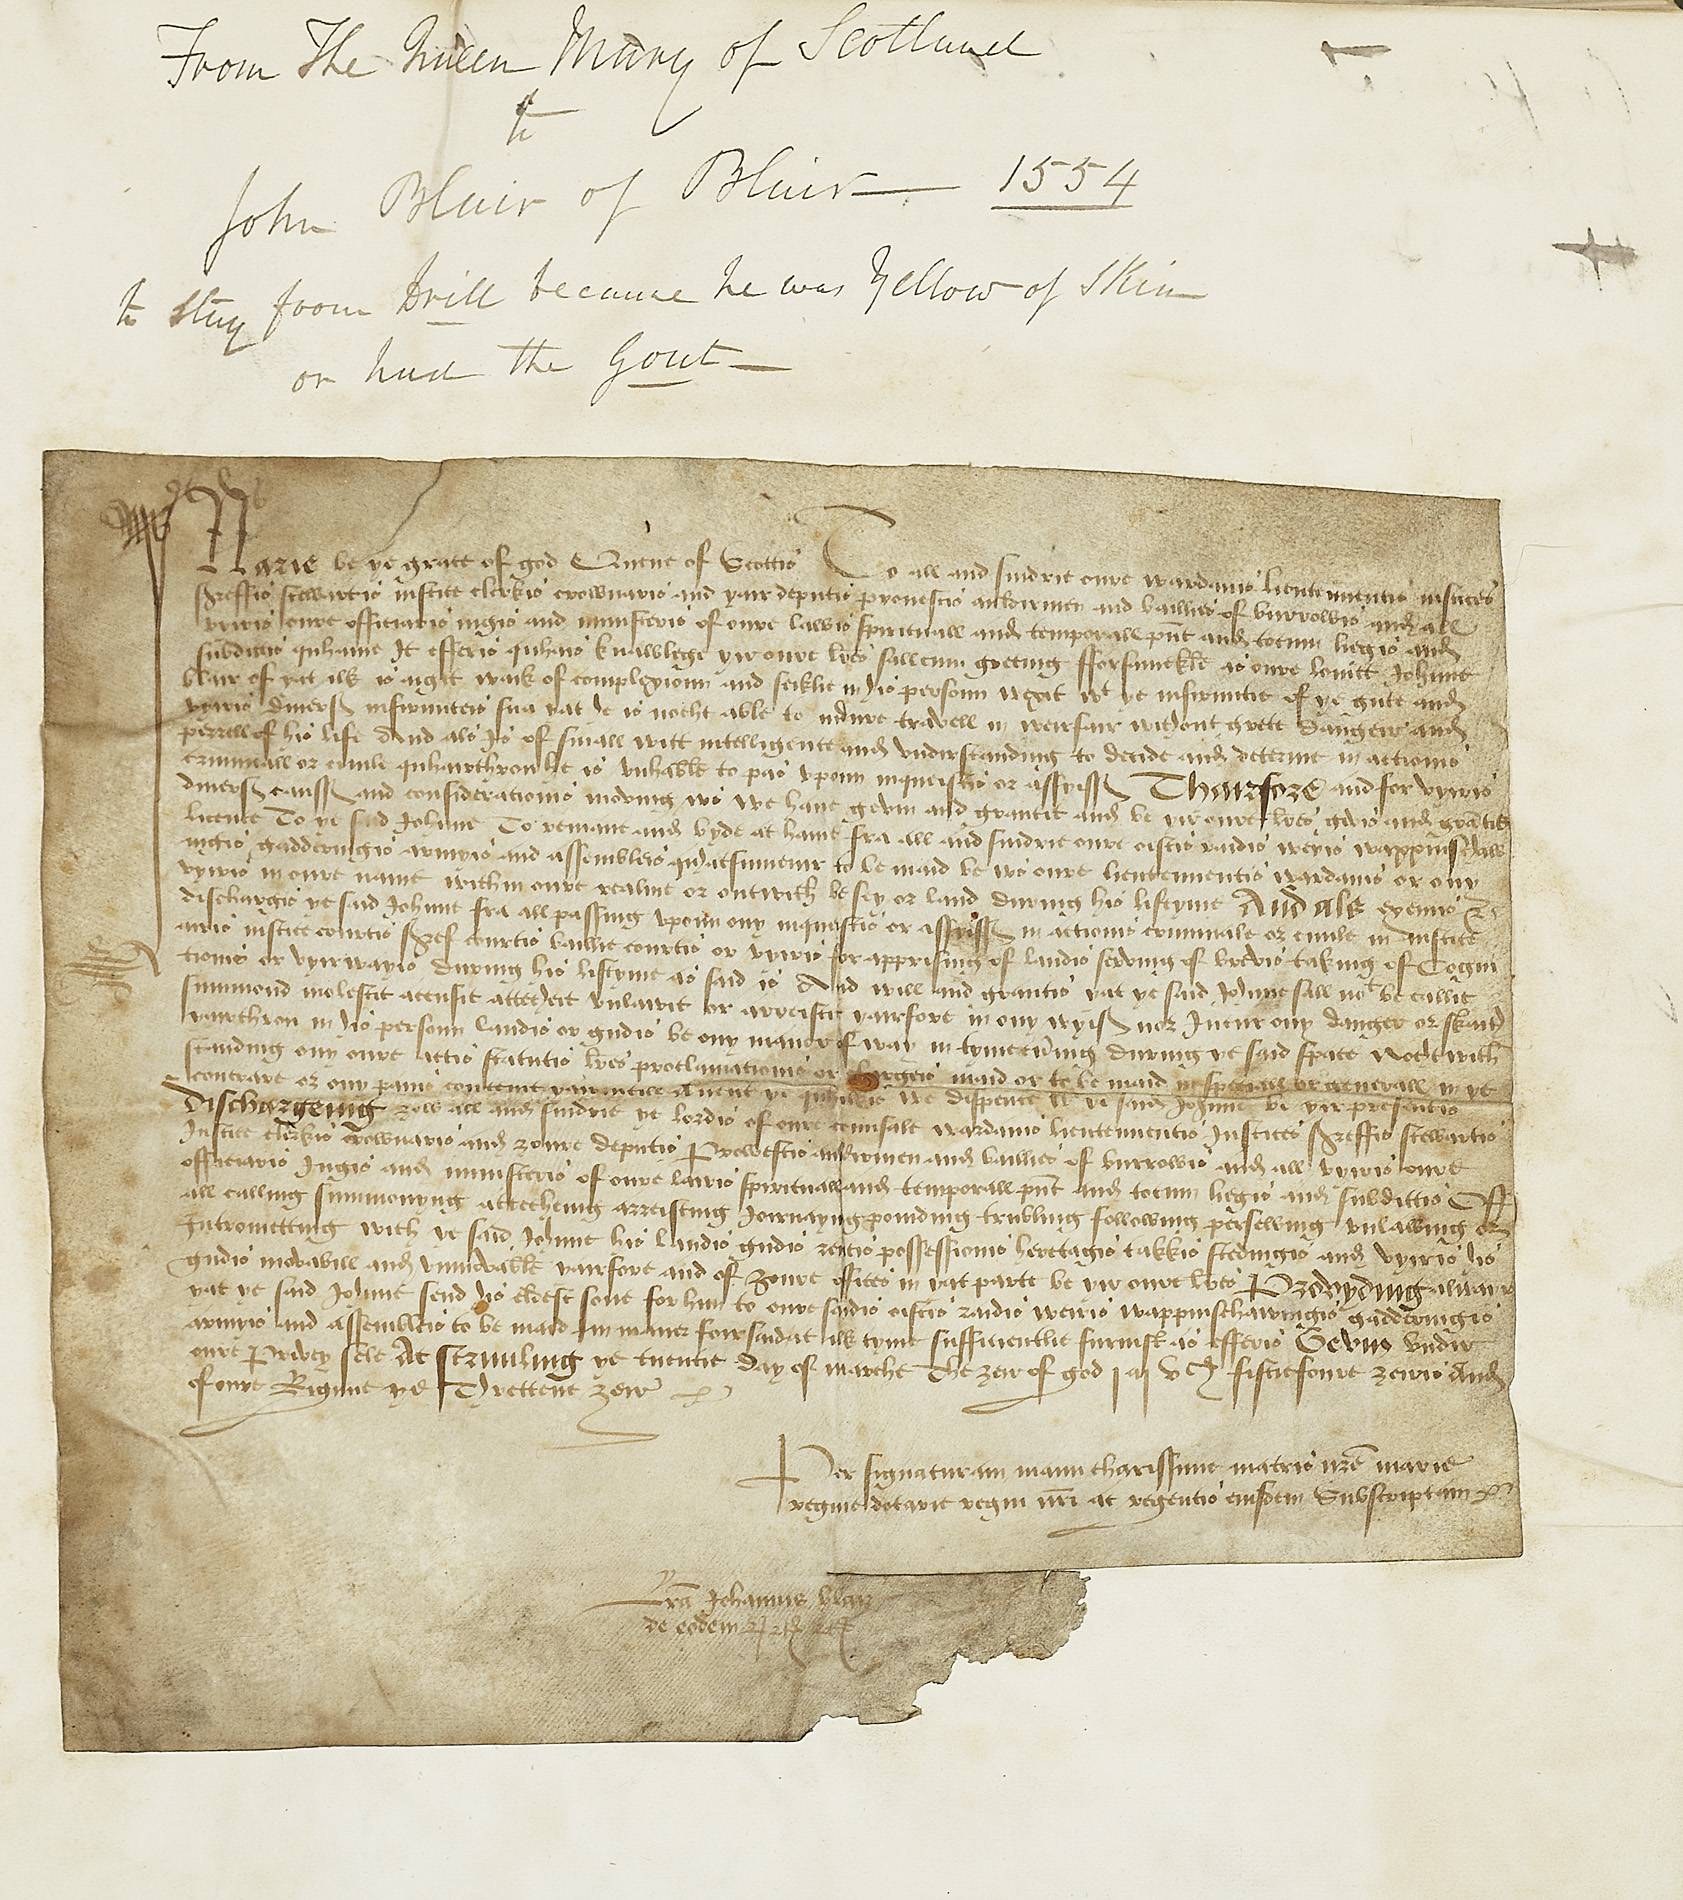 From The Queen Mary of Scotland
to
John Blair of Blair — 1554
to stay from Drill because he was Yellow of Skin
or had the Gout —
Marie be ye grace of god Quene of Scottis To all and sindrie oure wardanis lieutennentis justices
shreffis stewartis justice clerkis crownaris and yair deputis provestis aldermen and baillies of burrowis and all
vyiris oure officiaris iugis and ministeris of oure lawis spirituall and temporall pñt and tocum liegis and
subdittis quhame It efferis quhais knawlege yir oure lres sallcum greting fforsamekle as oure lovitt Johnne
blair of yat ilk is waik of complexioun and seiklie in his persoun vexit wt ye infirmitie of ye gute and
vyiris diuerss infirmiteis sua yat he is nocht able to indure travell in weirfair without grete dangeir and
perrell of his life And als Is of small witt intelligence and vnderstanding to decide and determe in actionis
criminall or ciuile quhairthrou he is vnhable to pas vpoun inqueistis or assyiss Thairfore and for vyiris
diuerss causs and considerationis moving ws we haue gevin and grantit and be yir oure lres gevis and grātis
licence To ye said Johnne To remane and byde at hame fra all and sindrie oure oistis raidis weyris wappinschaw
ingis gadderingis armyis and assembleis quhatsumeuir to be maid be ws oure lieutennentis wardanis or ony
vyiris in oure name within oure realme or outwith be sey or land during his liftyme And als exemis &
dischargis ye said Johnne fra all passing vpoun ony inquestis or assyiss in actionis criminale or ciuile in Justice
airis justice courtis shref courtis baillie courtis or vyiris for apprising of landis serving of brevis taking of Cogni
tionis or vyirwayis during his liftyme as said is And will and grantis yat ye said Johnne sall not be callit
summond molestit accusit attechit vnlawit or arreistit yairfore in ony wyiss nor Incur ony danger or skaith
yairthrou in his persoun landis or gudis be ony maner of way in tymecūing during ye said space Nochtwith
standing ony oure actis statutis lres proclamationis or chargeis maid or to be maid in speciall or generall in ye
contrare or ony panis contenit yairintill Anent ye quhilkis we dispence wt ye said Johnne be yir presentis
Dischargeing zow all and sindrie ye lordis of oure counsale wardanis lieutennentis Justices shreffis stewartis
Justice clerkis crownaris and zoure deputis Provestis aldermen and baillies of burrowis and all vyiris oure
officiaris Iugis and ministeris of oure lawis spirituall and temporall pñt and tocum liegis and subdittis Off
all calling summonyng attecheing arreisting Joirnaying poinding trubling following persewing vnlawing or
Intrometting with ye said Johnne his landis gudis rentis possessionis heretagis takkis stedingis and vyiris his
gudis movabill and vnmovable yairfore and of zoure offices in yat parte be yir oure lres Provyding alwais
yat ye said Johnne send his eldest sone for him to oure saidis oistis raidis weiris wappinschawingis gadderingis
armyis and assembleis to be maid in maner foirsaid at ilk tyme sufficientlie furnist as efferis Gevin vndir
oure Privey sele At Striuiling ye tuentie Day of marche The zeir of god j m vc fiftiefoure zeiris And
of oure Rigine ye Threttene zeir
Per signaturam manu charissime matris nre marie
regine dotarie regni nri ac regentis eiusdem Subscriptam
Lra Johannis blair
de eodem